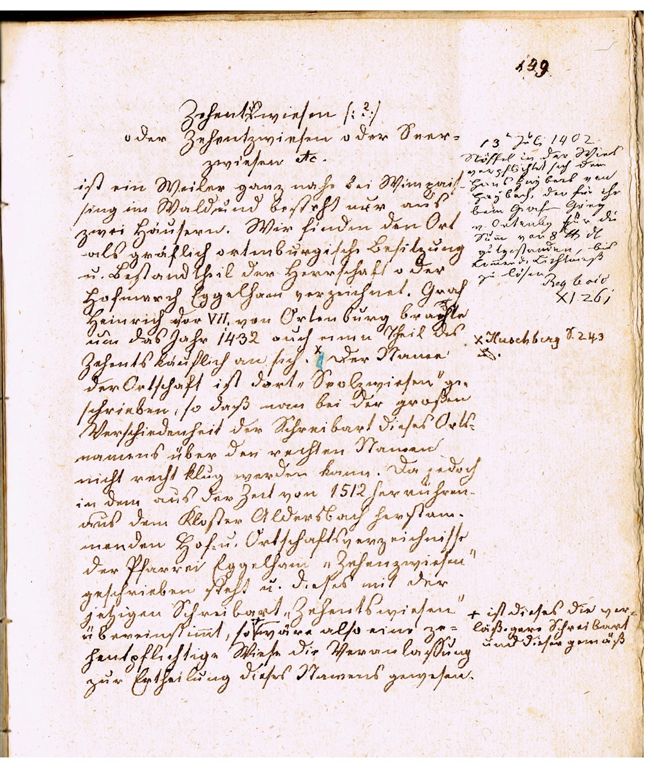 139
Zehentswiesen /: ? :/
oder Zehentzwiesen oder Seer-
zwiesen etc.
ist ein Weiler ganz nahe bei Wimpas-
sing im Wald und besteht nur aus
zwei Häusern. Wir finden den Ort
als gräflich ortenburgische Besitzung
u. Bestandtheil der Herrschaft oder
Hofmarch Eggelham verzeichnet. Graf
Heinrich der VII. von Ortenburg brachte
um das Jahr 1432 auch einen Theil des
Zehents käuflich an sich x. Der Name
der Ortschaft ist dort „ ge-
schrieben, so daß man bei der großen
Verschiedenheit der Schreibart dieses Orts-
namens über den rechten Namen
nicht recht klug werden kann. Da jedoch
in dem aus der Zeit von 1512 herrühren-
aus dem Kloster Aldersbach herstam-
menden Hof u. Ortschaftsverzeichnisse
der Pfarrei Eggelham „Zehenzwiesen"
geschrieben steht u. dieses mit der
jetzigen Schreibart „Zehentswiesen"
übereinstimmt, so + wäre also eine ze-
hentpflichtige Wiese die Veranlassung
zur Ertheilung dieses Namens gewesen.
13 1402
in der
verpflichtet sich dem
Hans von
der für ihn
beim Graf Görg
v. Ortenbg für die
Sum von 8 ₰
gutgestanden, bis
Lichtmeß
zu lösen
Reg boic
XI 261
x Huschberg S. 243
+ ist dieses die ver-
läßigere Schreibart
und dieser gemäß